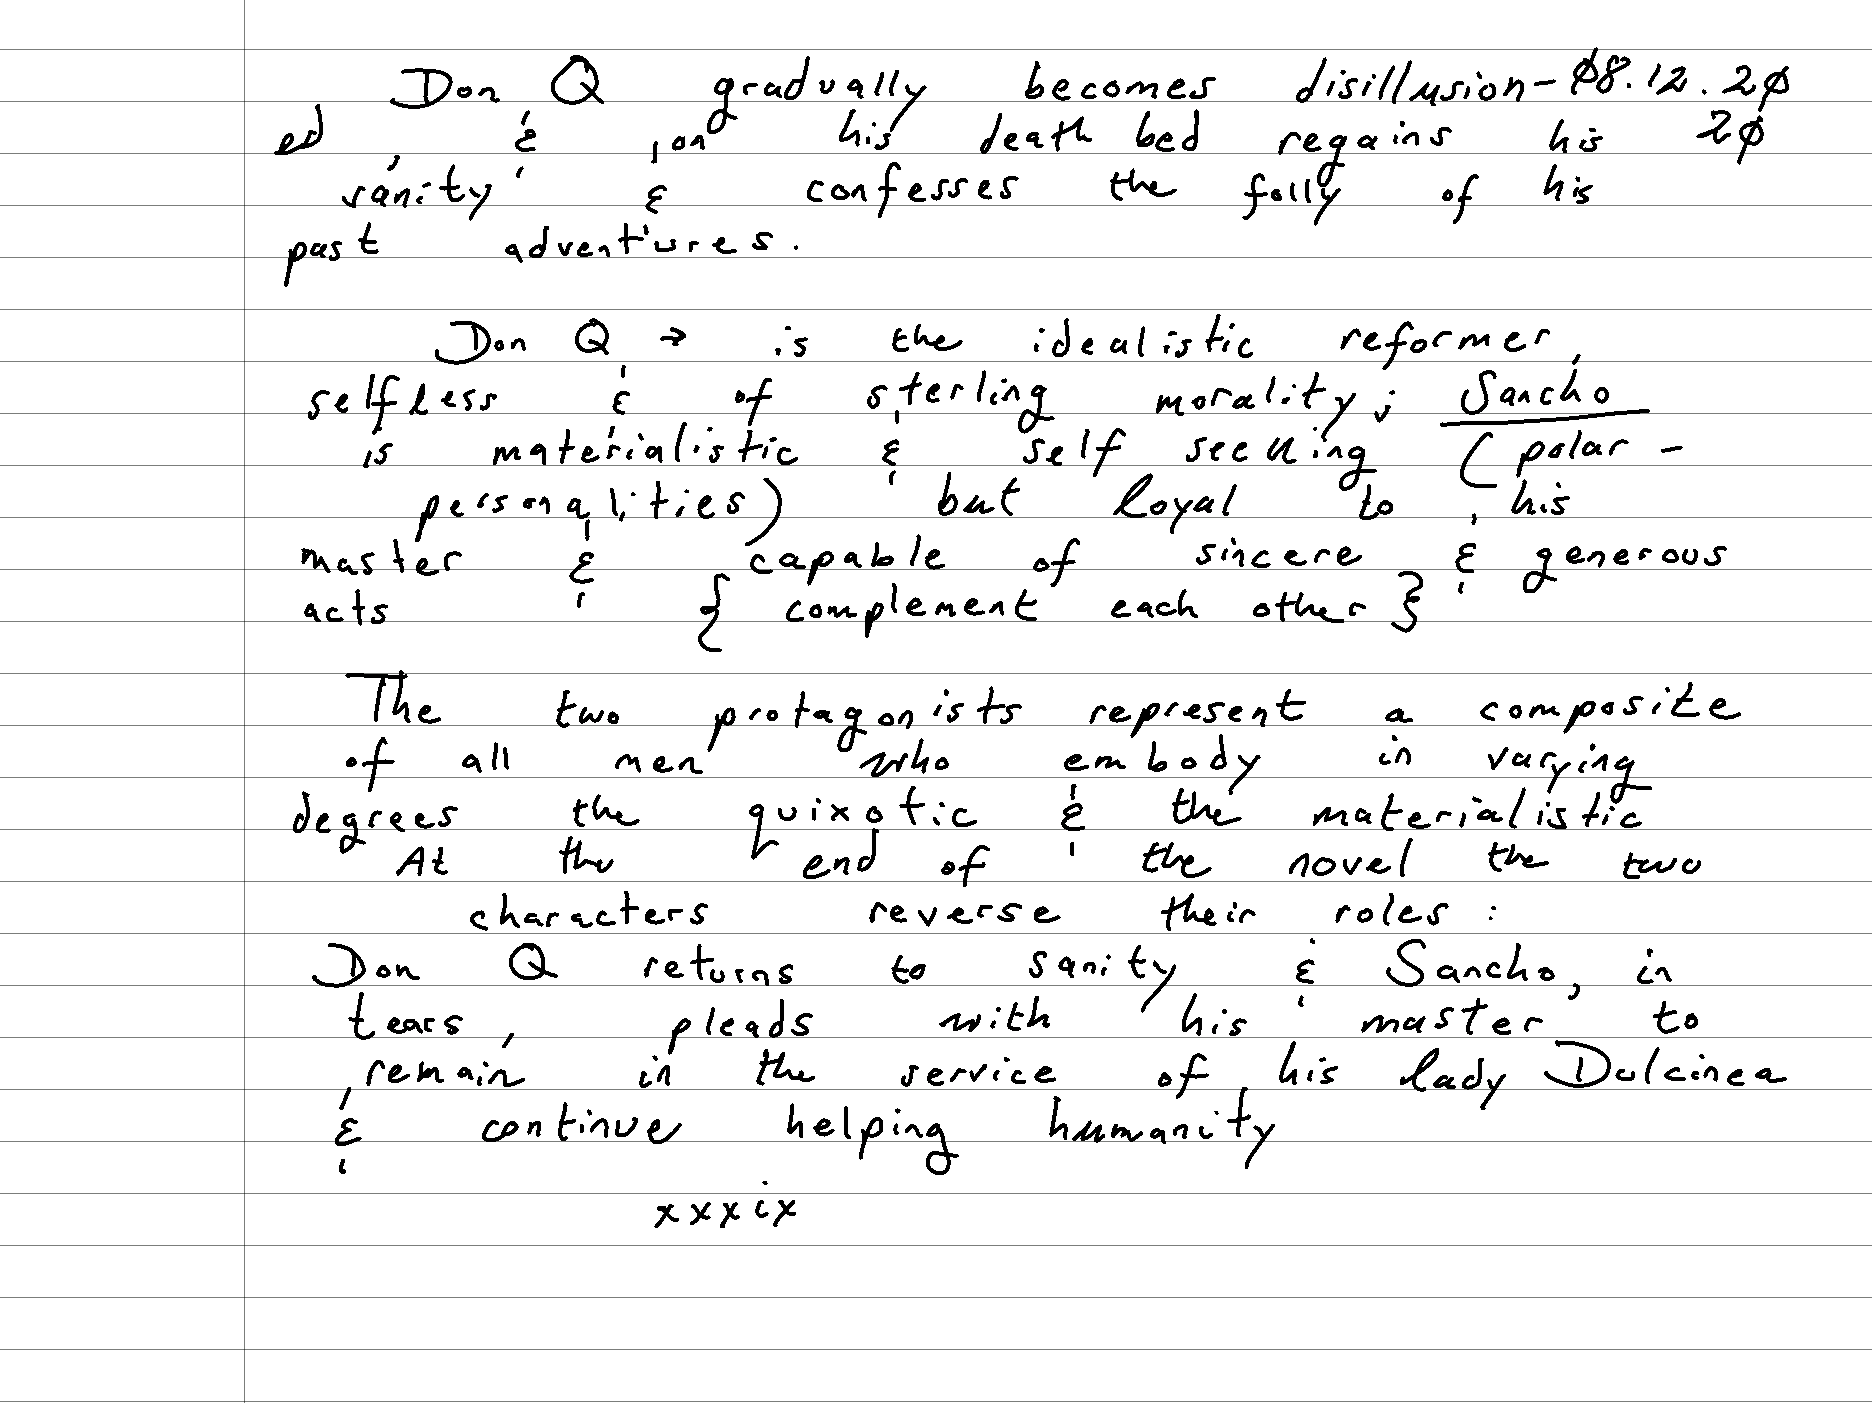 Don Q gradually becomes disillusion- 08.12.20
ed, & , on his death bed regains his 20
sanity & confesses the folly of his
past adventures.
Don Q → is the idealistic reformer,
selfless & of sterling morality; Sancho
is materialistic & self seeking (polar -
personalities) but loyal to his
master & capable of sincere & generous
acts { complement each other }
The two protagonists represent a composite
of all men who embody in varying
degrees the quixotic & the materialistic
At the end of the novel the two
characters reverse their roles :
Don Q returns to sanity & Sancho, in
tears, pleads with his master to
remain in the service of his lady Dulcinea
& continue helping humanity
xxxix